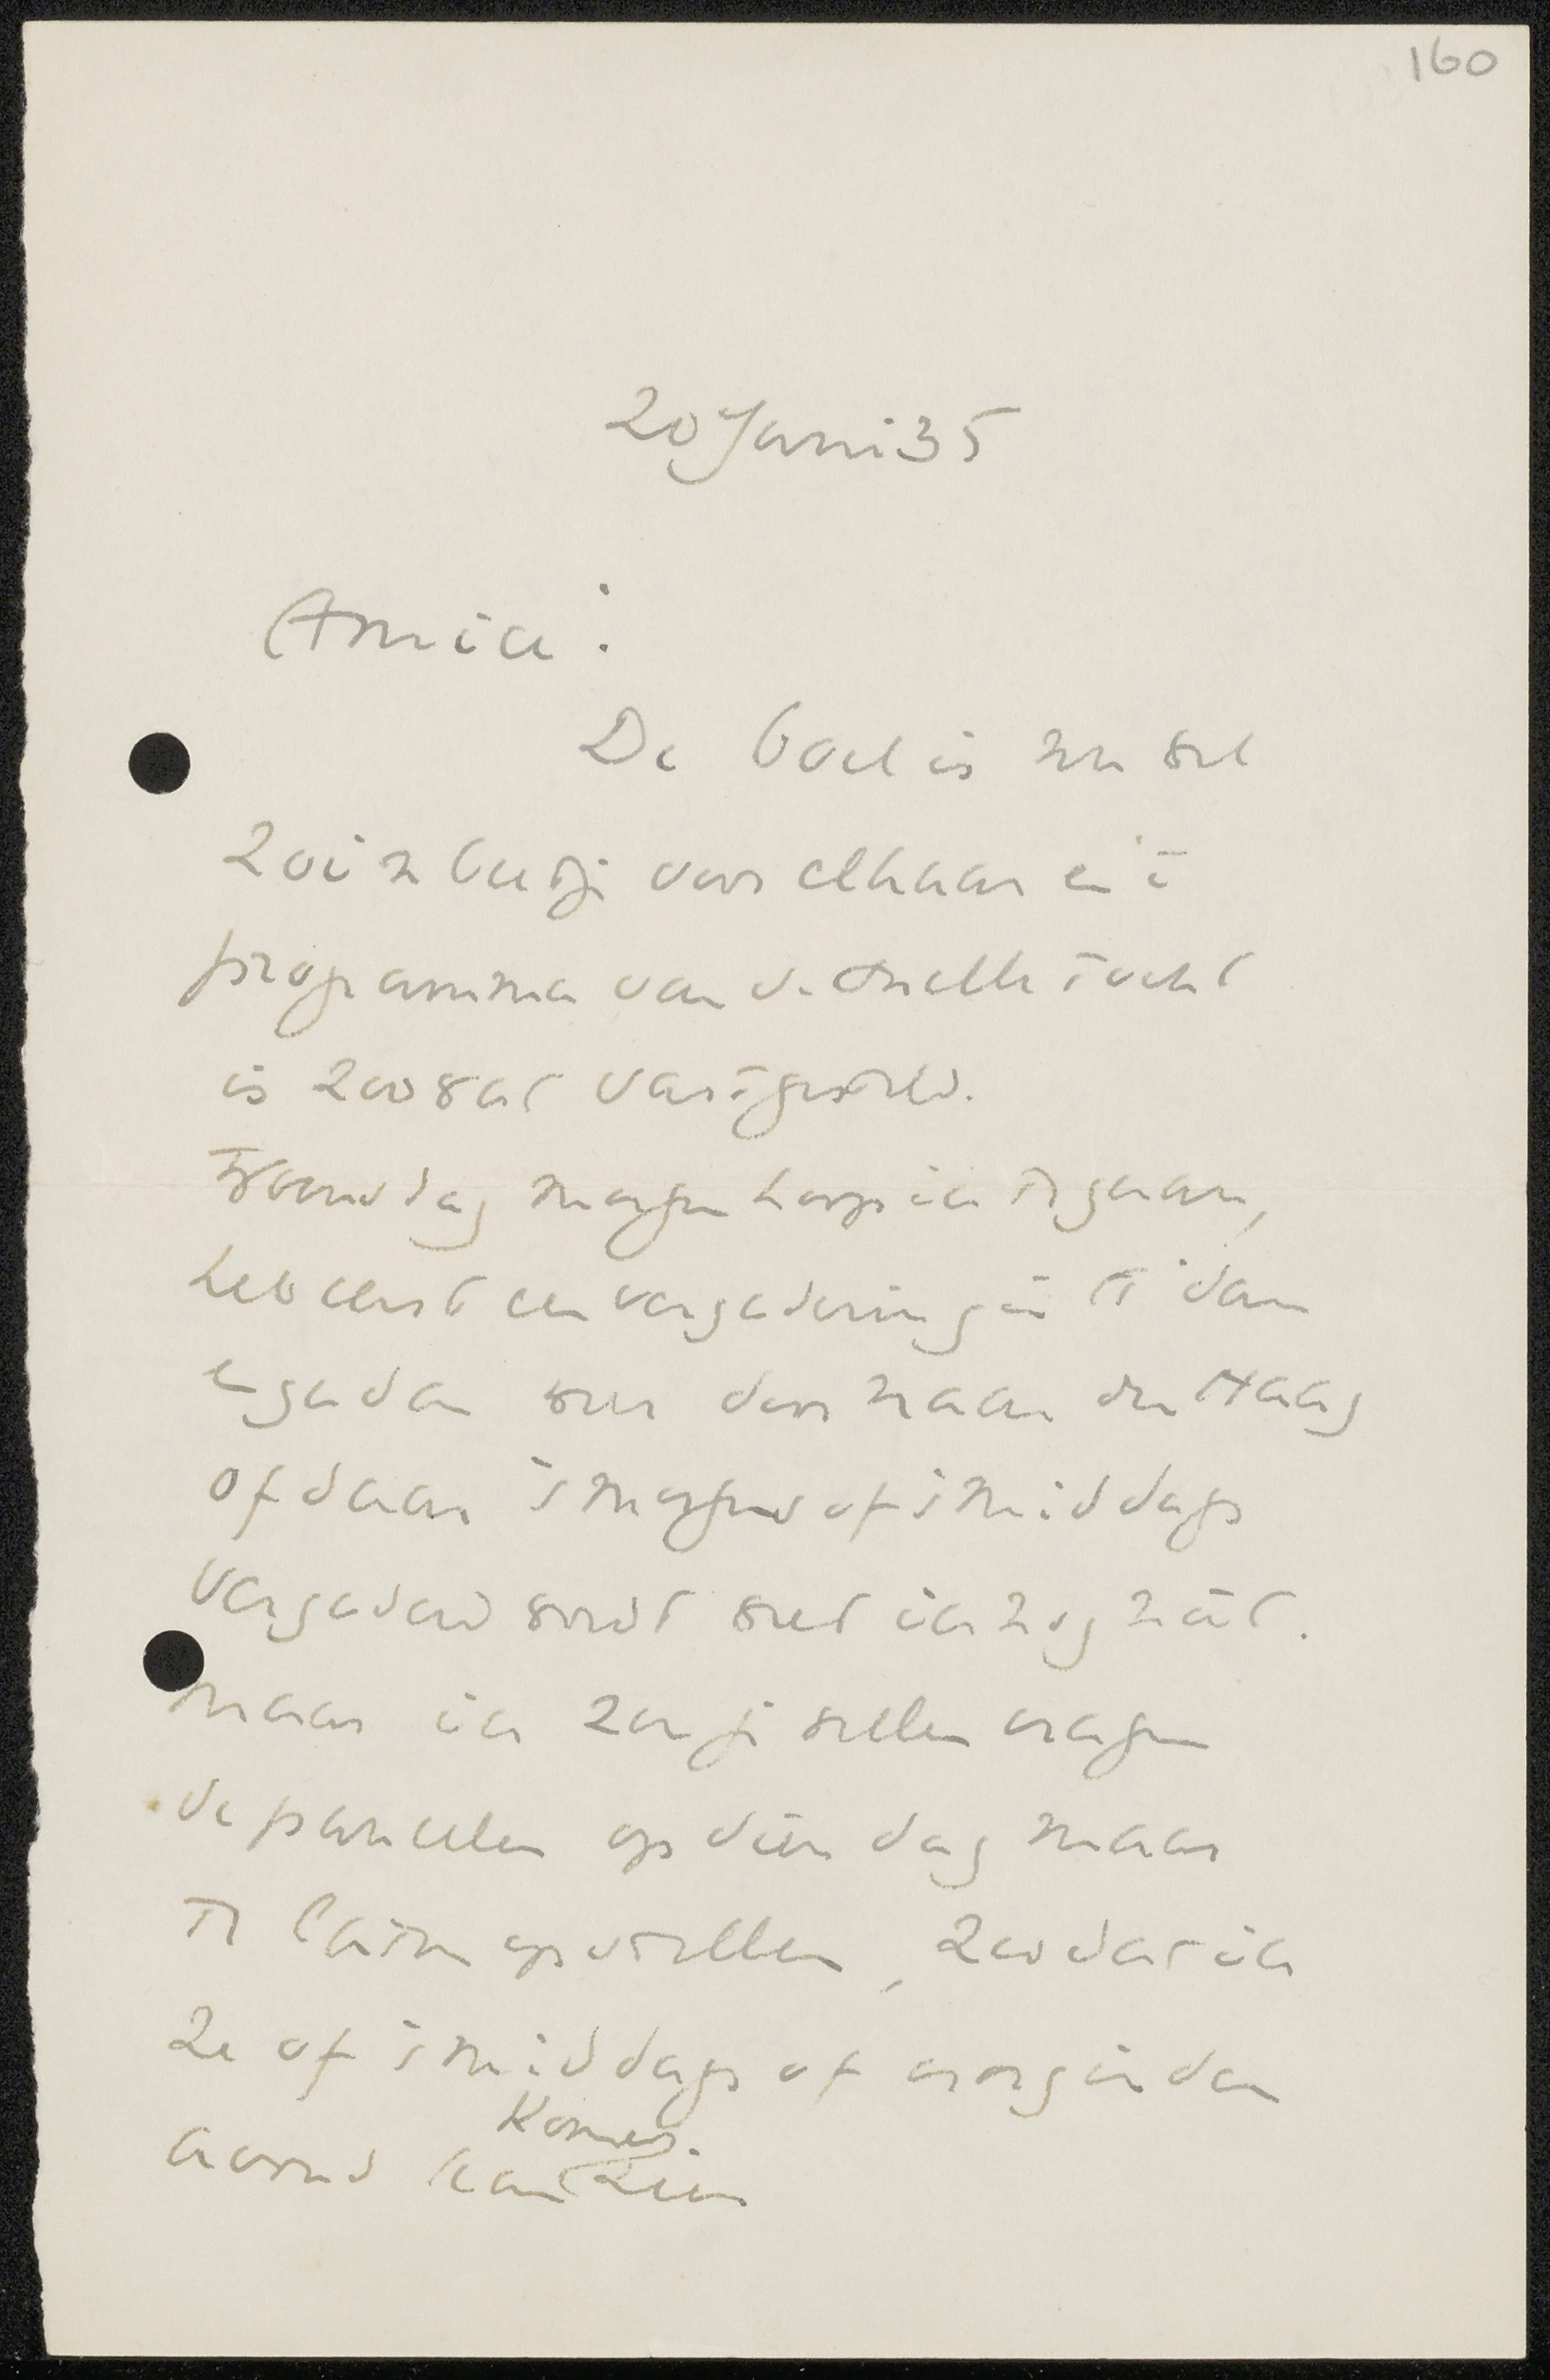 160
20 Juni 35
Amice:
De boel is nu wel
zoi'n beetje voor elkaar en 't
programma van de snelle tocht
is zoowat vastgesteld.
Woensdag morgen hoop ik te gaan,
heb eerst een vergadering in R'dam
en ga dan door naar den Haag
of daar 's morgens of 's middags
vergaderd wordt weet ik nog niet.
Maar ik zou je willen vragen
de paneelen op dien dag maar
te laten opstellen, zoodat ik
ze of 's middags of vroeg in den
avond kan komen zien